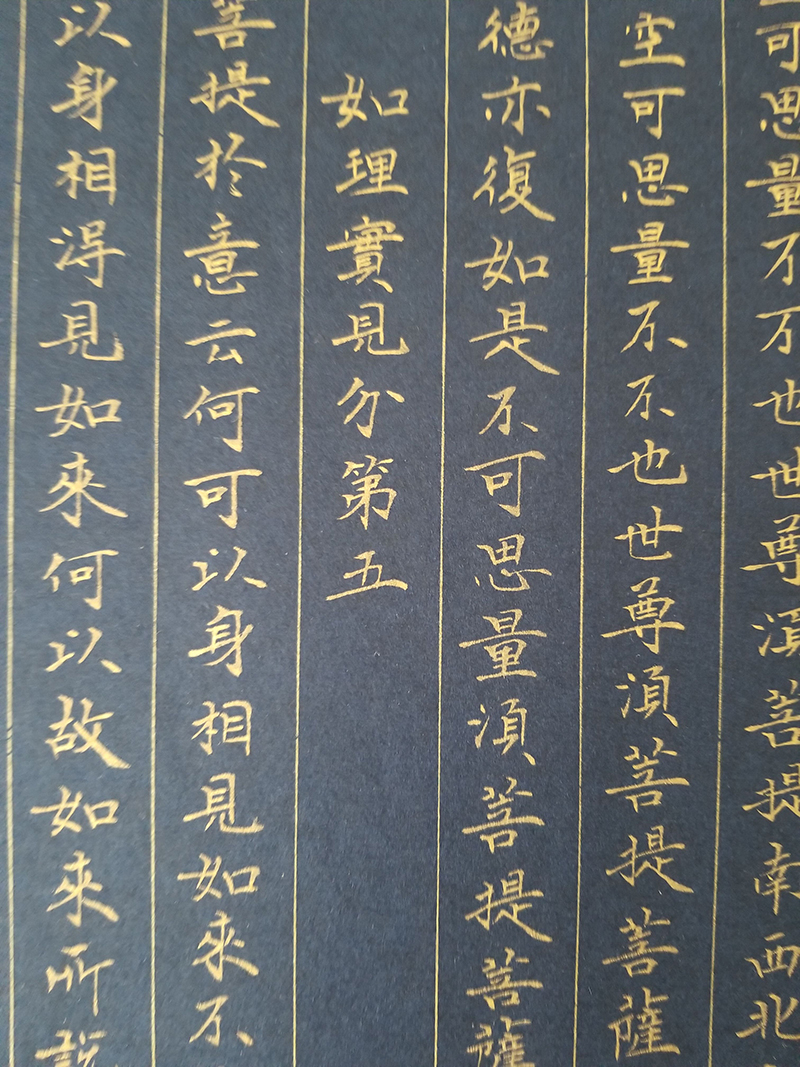 可思量不不也世尊湏菩提南西北
空可思量不不也世尊湏菩提菩薩
德亦復如是不可思量湏菩提菩薩
如理實見分第五
菩提於意云何可以身相見如來不
以身相得見如來何以故如來所說